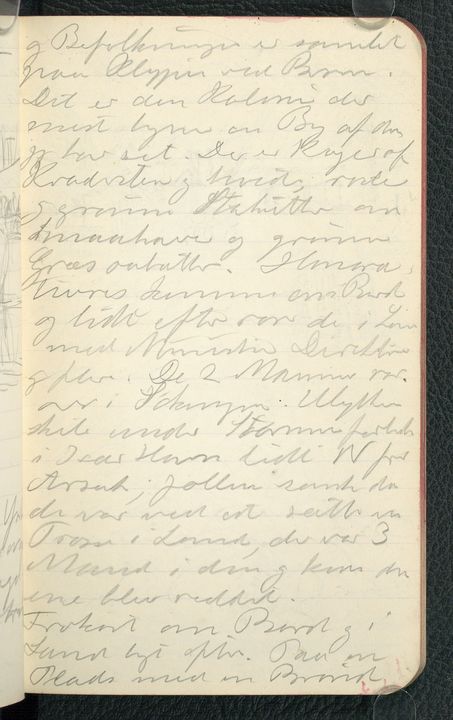 og Befolkningen er samlet
paa Klippen ved Bræen.
Det er den Koloni der
mest ligner en By af dem
jeg har set. Der er Kajer af
Kvadersten og hvide, røde
og grønne Stakitter om
Smaahaver og grønne
Græsrabatter. Honora-
tiores kommer om Bord
og lidt efter var de i Land
med Ministeren Direktøren
og flere. De 2 Mænd var
over i. Ulykken
skete under Storm
i Havn lidt N for
Arsuk; Jollen sank da
de var ved at sætte en
Trosse i Land, der var 3
Mand i den og kun den
ene blev reddet.
Frokost om Bord og i
Land lige efter. Paa en
Plads med en Brønd